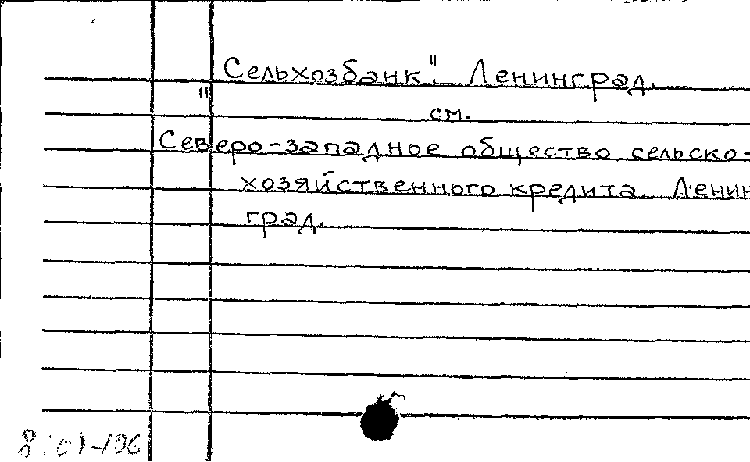 "Сельхозбанк". Ленинград.
см.
Северо-западное общество сельско-
хозяйственного кредита. Ленин
град.